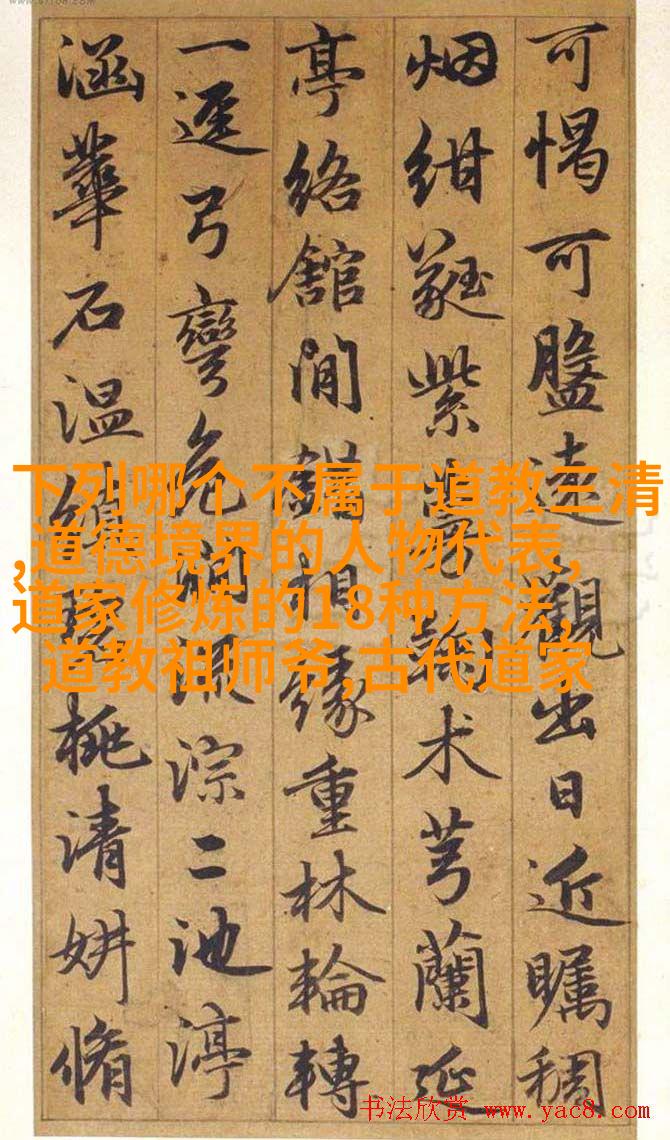 下列哪个不属于道教三清
,道德境界的人物代表,
道家修炼的18种方法,
道教祖师爷,古代道家
可愒可遠觀出日近矚稠
烟紺蕤紫术芎蘭延
亭絡館間錯相緣重林輪轉
一逕弓彎淙二池渟
涵華石温桃清妍脩
书法欣赏 www.yac8.com